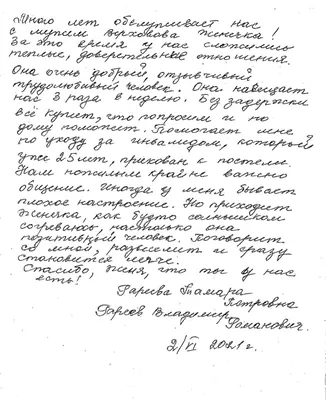 Много лет обслуживает нас
с мужем Верховова Женечка!
За это время у нас сложились
тёплые, доверительные отношения.
Она очень добрый, отзывчивый
трудолюбивый человек. Она навещает
нас 3 раза в неделю. Без задержки
всё купит, что попросим и по
дому поможет. Помогает мне
по уходу за инвалидом, который
уже 25 лет, прикован к постели.
Нам пожилым крайне важно
общение. Иногда у меня бывает
плохое настроение. Но приходит
Женечка, как будто солнышком
согреваюсь, настолько она
позитивный человек. Поговорит
со мной, развеселит и сразу
становится легче.
Спасибо, Женя, что ты у нас
есть!
Тамара
Петровна
Владимир
Романович.
2/VI 2021 г.